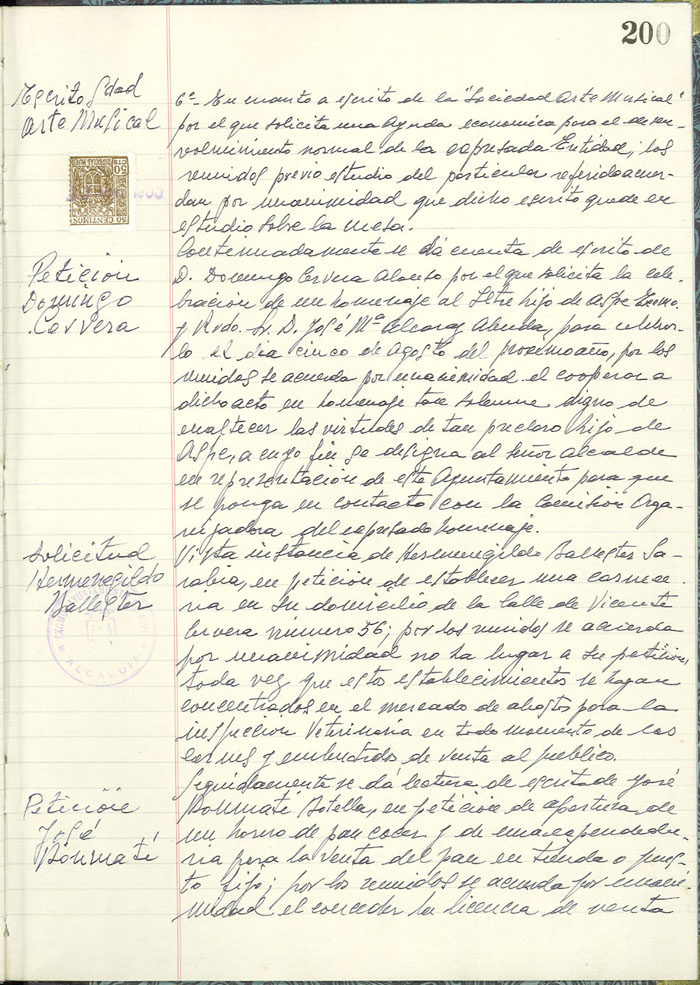 200
Escrito Sdad
Arte Musical
50 CTS
ESPECIAS MUN
50 CENTIMOS
6º- En cuanto a escrito de la "Sociedad Arte Musical"
por el que solicita una Ayuda economica para el desen-
volvimiento normal de la expresada Entidad; los
reunidos previo estudio del particular referido acuer-
dan por unanimidad que dicho escrito quede en
estudio sobre la mesa.
Petición
Domingo
Cervera
Continuadamente se dá cuenta de escrito de
D. Domingo Cervera Alonso por el que solicita la cele-
bración de un homenaje al Iltre hijo de Aspe Excmo.
y Rvdo. Sr. D. José Mª Alcaraz Alenda, para celebrar-
lo el dia cinco de Agosto del proximo año, por los
reunidos se acuerda por unanimidad el cooperar a
dicho acto en homenaje tan solemne digno de
enaltecer las virtudes de tan preclaro hijo de
Aspe, a cuyo fin se designa al Señor Alcalde
en representación de este Ayuntamiento para que
se ponga en contacto con la Comisión Orga-
nizadora del expresado homenaje.
Solicitud
Hermenegildo
Ballester
ALCALDIA
Vista instancia de Hermenegildo Ballester Sa-
rabia, en petición de establecer una carnice-
ria en su domicilio de la Calle de Vicente
Cervera número 56; por los reunidos se acuerda
por unanimidad no ha lugar a su petición,
toda vez que estos establecimientos se hayan
concentrados en el mercado de abastos para la
inspección Veterinaria en todo momento de las
carnes y embutidos de venta al publico.
Petición
José
Bonmatí
Seguidamente se dá lectura de escrito de José
Bonmatí Botella, en petición de apertura de
un horno de pan cocer y de una expendedu-
ria para la venta del pan en tienda o pues-
to fijo; por los reunidos se acuerda por unani-
midad el conceder la licencia de venta